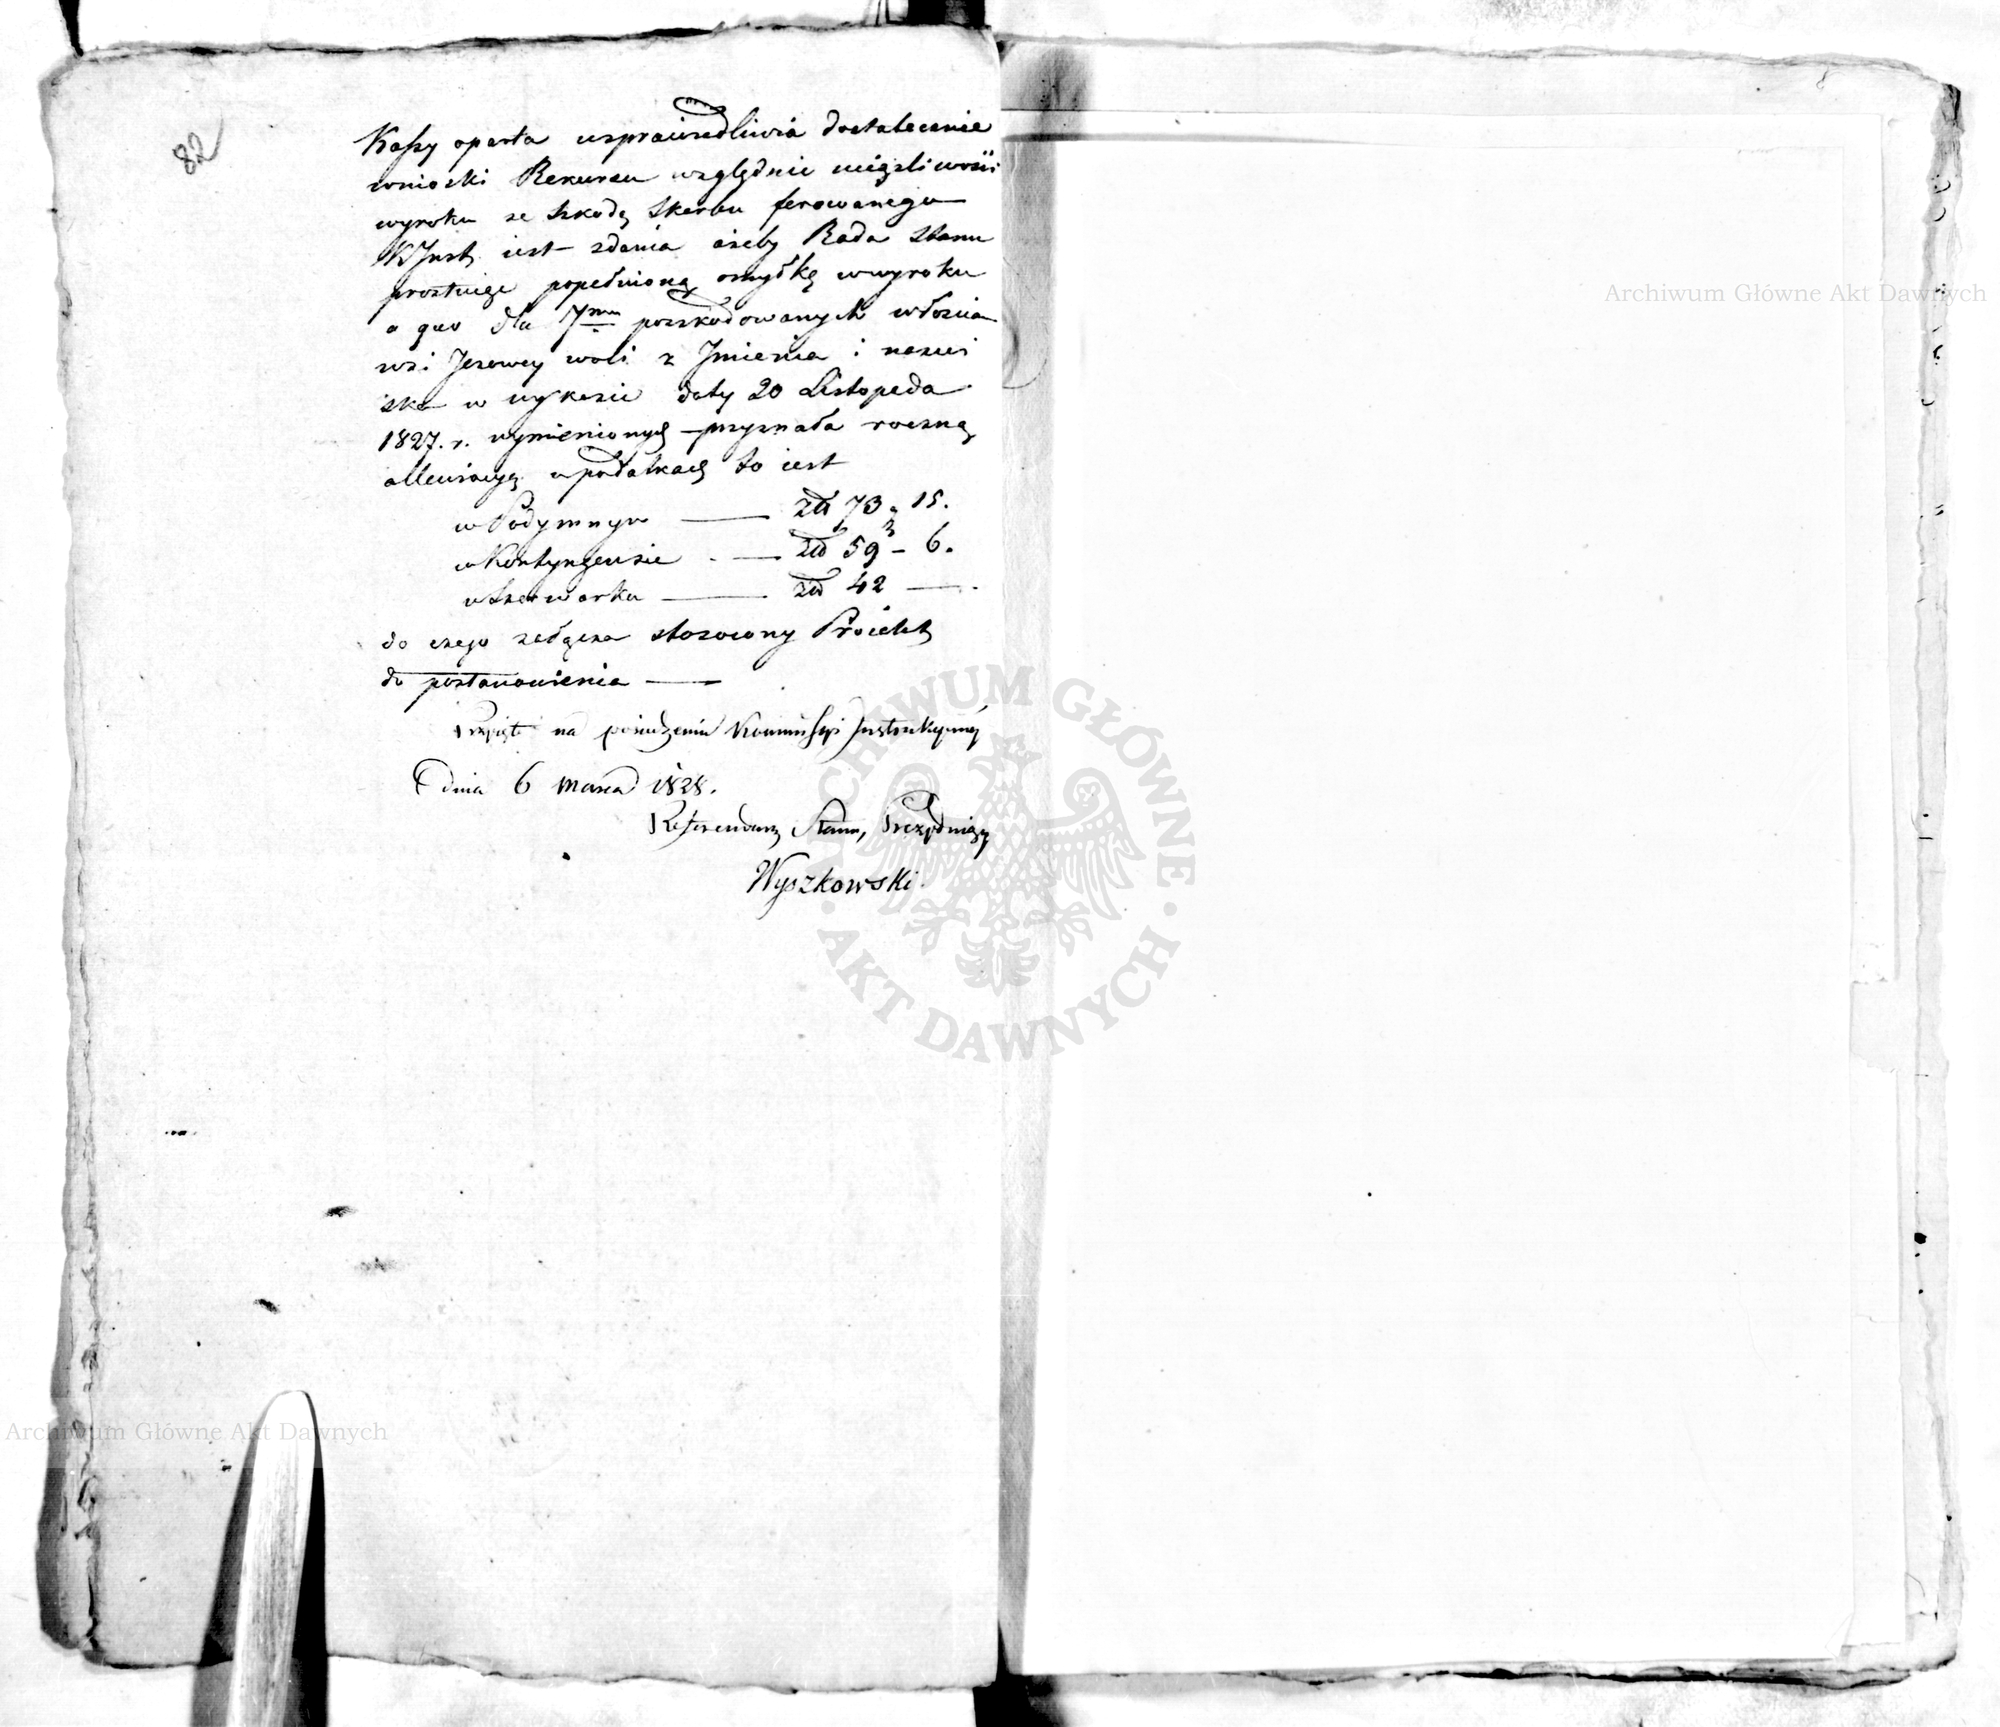 82
Kassy oparta usprawiedliwia dostatecznie
wnioski Rekursu względnie uciążliwości
wyroku ze szkodą Skarbu ferowanego
KJnst. iest zdania ażeby Rada Stanu
prostuiąc popełnioną omyłkę w wyroku
a quo dla 7miu poszkodowanych włościan
wsi Jeżowey woli z Jmienia i nazwi
ska w wykazie daty 20 Listopada
1827. r. wymienionych przyznała roczną
allewiacyą w podatkach to iest
w Podymnym — zł 73 g 15.
w Kontyngensie — zł 59 – 6.
w Szarwarku — zł 42 —
do czego załącza stosowny Proiekt
do postanowienia —
Przyięto na posiedzeniu Kommissyi Jnstrukcyiney
dnia 6 marca 1828.
Referendarz Stanu, Prezyduiący
Wyszkowski
Archiwum Główne Akt Dawnych
ARCHIWUM GŁÓWNE
AKT DAWNYCH
Archiwum Główne Akt Dawnych